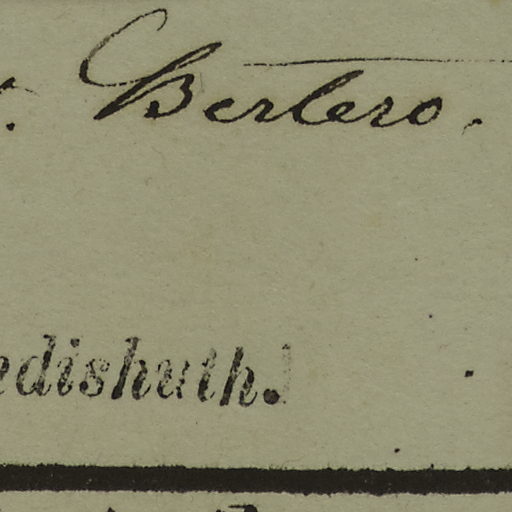 Bertero.
edishuth.